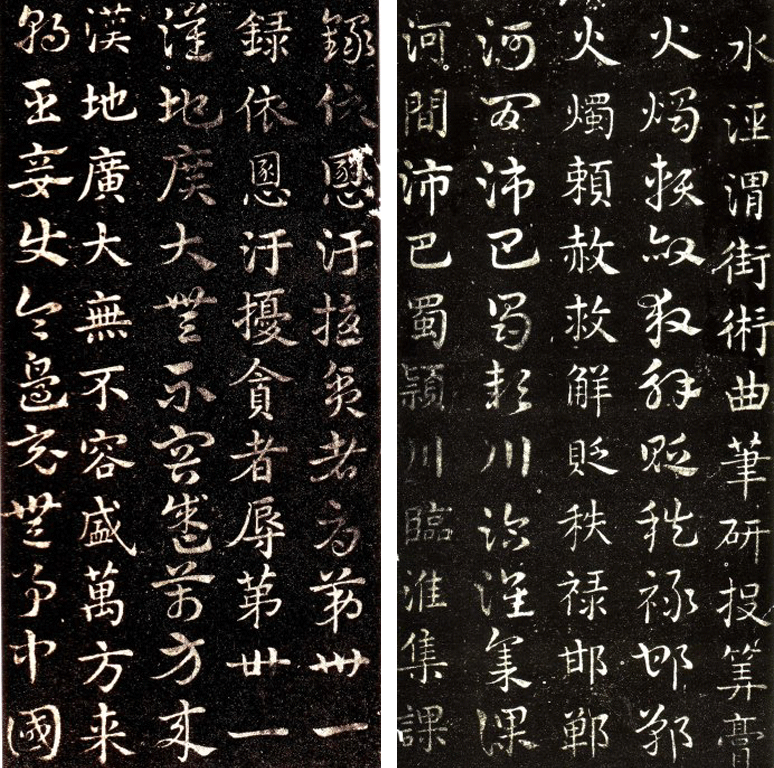 水涇渭街術曲筆研投筭膏
火燭賴赦救解貶秩祿邯鄲
火燭賴赦救解貶秩禄邯鄲
河間沛巴蜀潁川臨淮集課
河間沛巴蜀潁川臨淮集課
録依慁汙擾貪者辱第卅一
録依慁汙擾貪者辱第卅一
漢地廣大無不容盛萬方来
漢地廣大無不容盛萬方来
朝臣妾使令邊竟無事中國